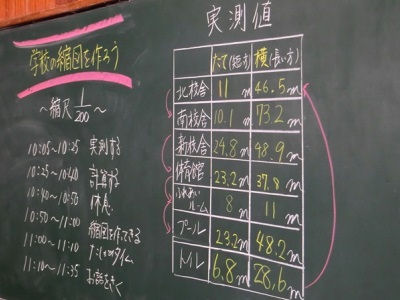 学校の縮図を作ろう
～縮尺 1/200～
10:05～10:25 実測する
10:25～10:40 計算する
10:40～10:50 休息
10:50～11:00 縮図を作ってきる
11:00～11:10
11:10～11:35 お話をきく
実測値
たて(短い方) 横(長い方)
北校舎 11m 46.5m
南校舎 10.1m 73.2m
新校舎 24.8m 48.9m
体育館 23.2m 37.8m
ふれあいルーム 8m 11m
プール 23.2m 48.2m
トイレ 6.8m 28.6m